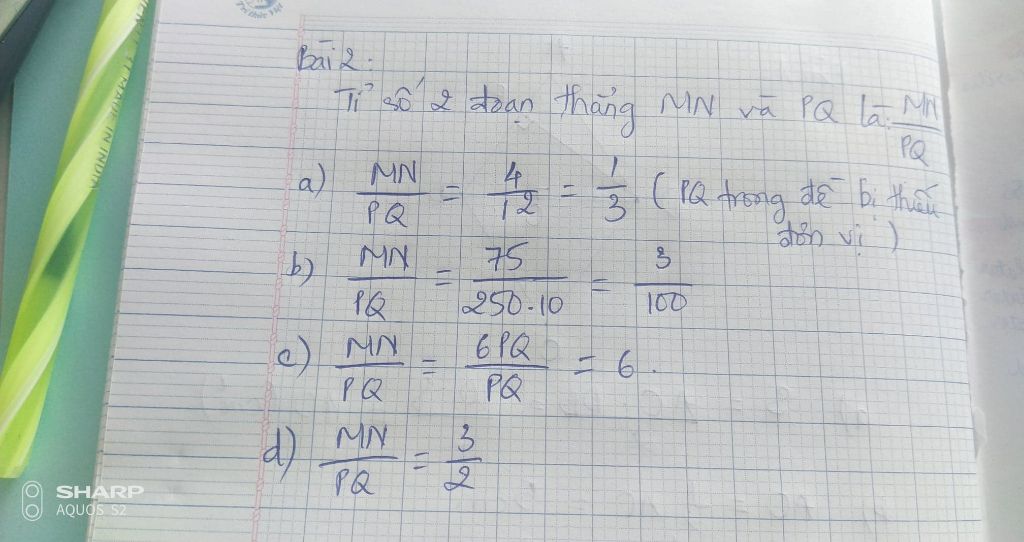 Tri thức Việt
Bài 2:
Tỉ số 2 đoạn thẳng MN và PQ là: MN/PQ
a) MN/PQ = 4/12 = 1/3 (PQ trong đề bị thiếu
đơn vị)
b) MN/PQ = 75/250.10 = 3/100
c) MN/PQ = 6PQ/PQ = 6.
d) MN/PQ = 3/2
MADE IN INDIA
SHARP
AQUOS S2